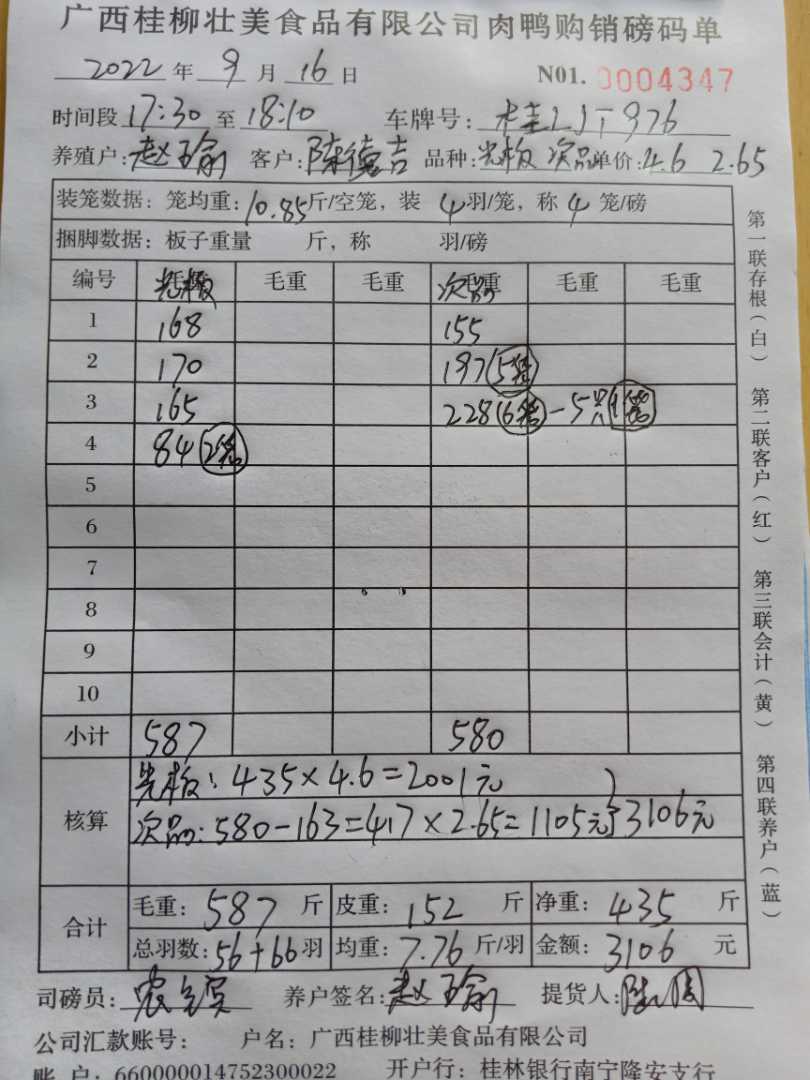 广西桂柳壮美食品有限公司肉鸭购销磅码单
2022年9月16日 N01.0004347
时间段17:30至18:10 车牌号:桂LJT976
养殖户:赵玉愉 客户:陈德吉 品种:光板 次品 单价:4.6 2.65
装笼数据:笼均重:10.85斤/空笼,装4羽/笼,称4笼/磅
捆脚数据:板子重量 斤,称 羽/磅
编号 光板 毛重 毛重 次品 毛重 毛重
1 168 155
2 170 197(5笼)
3 165 228(6笼)-5只(1笼)
4 84(2笼)
5
6
7
8
9
10
小计 587 580
核算 光板:435×4.6=2001元
次品:580-163=417×2.65=1105元}3106元
合计 毛重:587斤 皮重:152斤 净重:435斤
总羽数:56+66羽 均重:7.76斤/羽 金额:3106元
司磅员: 养户签名:赵 提货人:陈
公司汇款账号: 户名:广西桂柳壮美食品有限公司
账户:660000014752300022 开户行:桂林银行南宁隆安支行
第一联存根(白) 第二联客户(红) 第三联会计(黄) 第四联养户(蓝)